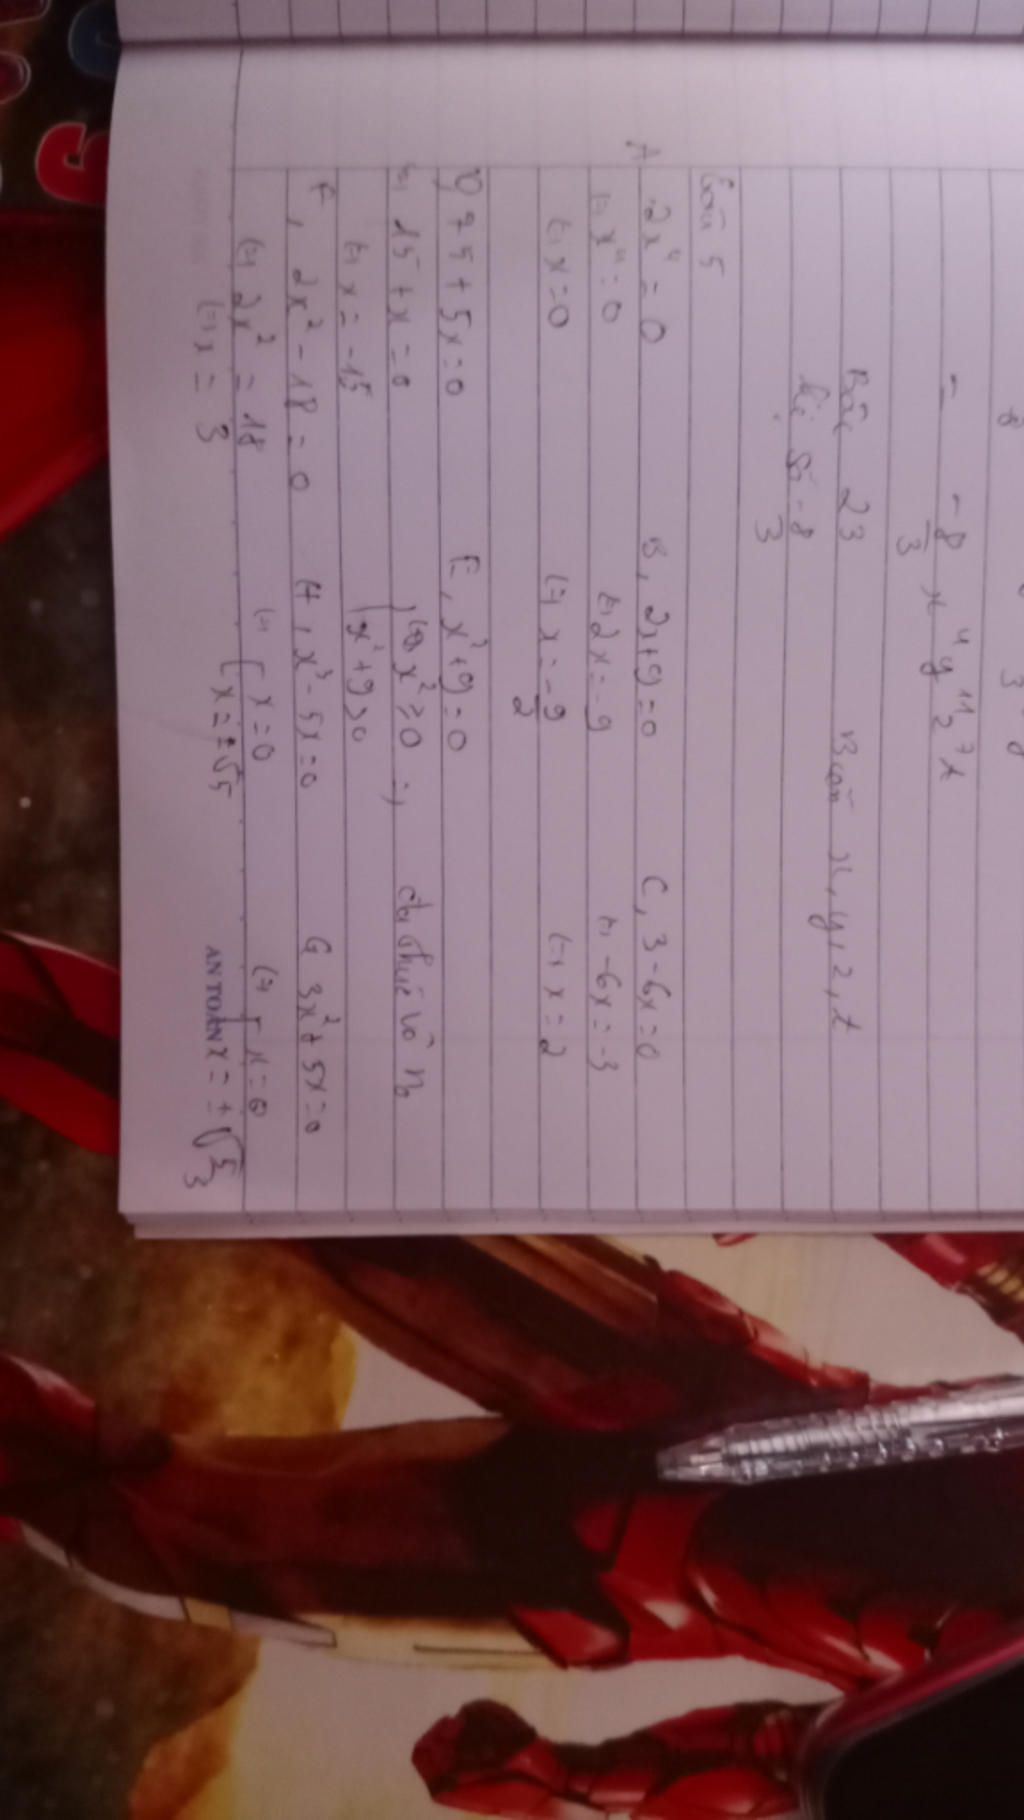 = -8/3 x⁴ y¹¹ z⁷ t
Bậc 23 Biến x, y, z, t
hệ số -8/3
Câu 5
A 2x⁴ = 0 B, 2x+9=0 C, 3-6x=0
⇔ x⁴ = 0 ⇔ 2x = -9 ⇔ -6x = -3
⇔ x = 0 ⇔ x = -9/2 ⇔ x = 2
D 75 + 5x = 0 E, x²+9=0
⇔ 15 + x = 0 x² ≥ 0 => đa thức vô n₀
⇔ x = -15 x²+9>0
F, 2x² - 18 = 0 H, x³ - 5x = 0 G 3x² + 5x = 0
⇔ 2x² = 18 ⇔ x = 0 ⇔ x = 0
⇔ x = 3 x = ±√5 x = ±√5/3
AN TOÀN